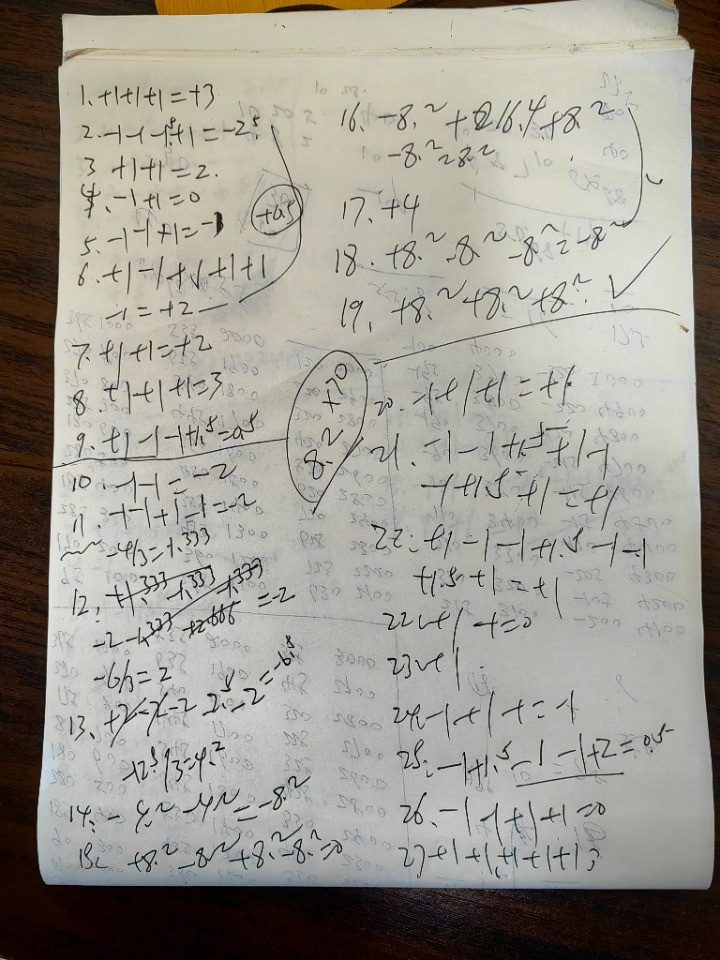 1. +1+1+1=+3
3 +1+1=2.
4. -1+1=0
5. -1-1+1=-1
6. +1-1+1+1+1
-1=+2
+0.5
7. +1+1=+2
8. +1+1+1=3
9. +1-1-1+1.5=0.5
10. -1-1=-2
11. -1-1+1-1=-2
-4/3=1.333
12. +1.333 -1.333 -1.333
-2 -1.333 +2.666 =-2
-6/3=2
13. +2-2-2
14. -4.2-4.2=-8.2
+8.2-8.2+8.2-8.2=0
8.2 +20
16. -8.2+16.4+8.2
-8.2=8.2
17. +4
18. +8.2-8.2-8.2=-8.2
19. +8.2+8.2+8.2
20. -1+1+1=+1
21. -1-1+1.5+1-1
-1+1.5+1=+1
22. +1-1-1+1.5-1-1
+1.5+1=+1
22
23
24. -1+1-1=-1
25. -1+1.5-1-1+2=0.5
26. -1-1+1+1=0
27 +1+1+1+1+1